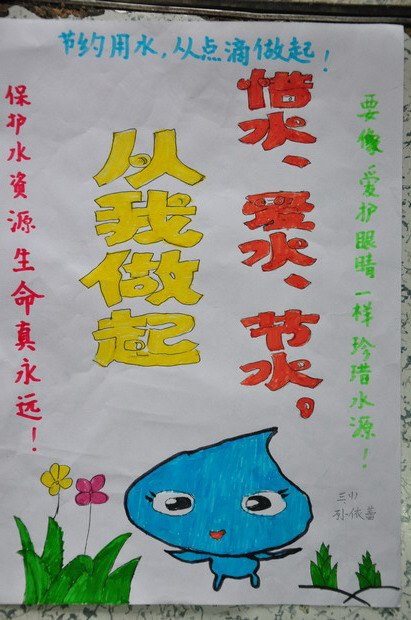 节约用水，从点滴做起！
惜水、爱水、节水。
从我做起
要像爱护眼睛一样珍惜水源！
保护水資源生命真永远！
三(1)
孙依蕾